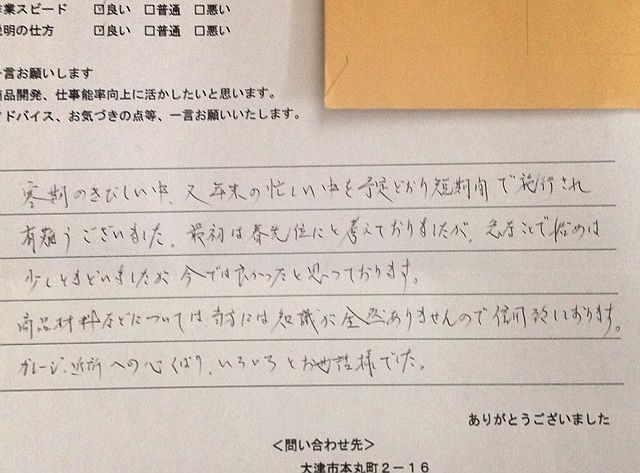 作業スピード ☑良い □普通 □悪い
説明の仕方 ☑良い □普通 □悪い
一言お願いします
商品開発、仕事能率向上に活かしたいと思います。
アドバイス、お気づきの点等、一言お願いいたします。
寒期のきびしい中、又年末の忙しい中を予定どおり短期間で施行され
有難うございました。最初は春先位にと考えておりましたが、急なことで始めは
少しとまどいましたが今では良かったと思っております。
商品材料などについては当方には知識が全然ありませんので信用致しております。
ガレージ、近所への心くばり、いろいろとお世話様でした。
ありがとうございました
<問い合わせ先>
大津市本丸町2－16